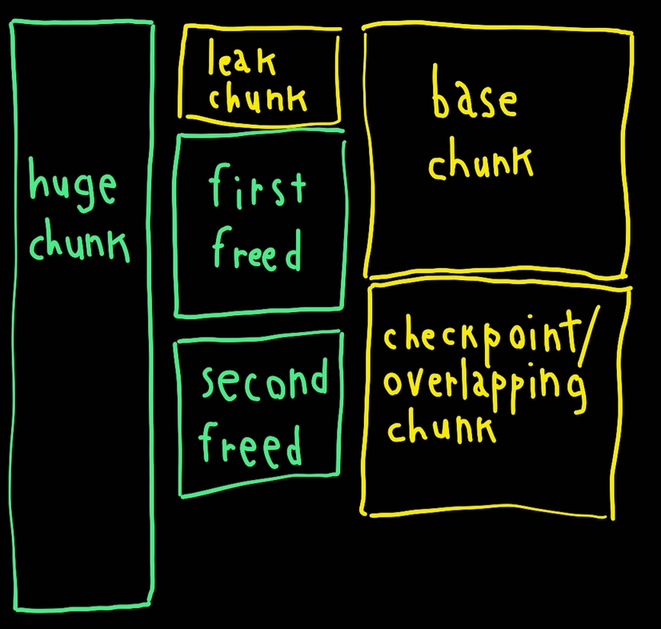 huge
chunk
leak
chunk
first
freed
second
freed
base
chunk
checkpoint/
overlapping
chunk